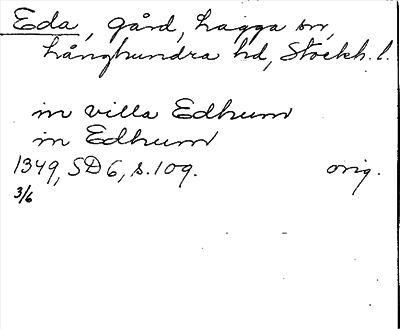 Eda, gård, Lagga sn,
Långhundra hd, Stockh. l.
in villa Edhum
in Edhum
1349, SD 6, s. 109. orig.
3/6